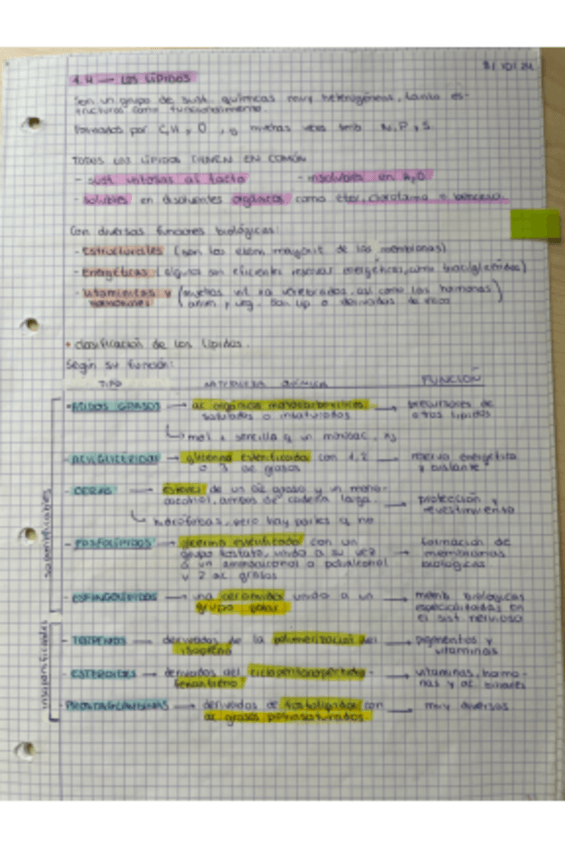 1.4 — LOS LÍPIDOS
Son un grupo de sust. químicas muy heterogéneas, tanto es-
tructural como funcionalmente.
Formados por C, H, O, y muchas veces tmb N, P, S
TODOS LOS LÍPIDOS TIENEN EN COMÚN
- sust untosas al tacto - insolubles en H2O
- solubles en disolventes orgánicos como éter, cloroformo o benceno.
Con diversas funciones biológicas:
- Estructurales (son los elem. mayorit de las membranas)
- Energéticas (algunos son eficientes reservas energéticas, como triacilglicéridos)
- Vitamínicas y hormonales (muchas vit en vertebrados, así como las hormonas
anim y veg. son líp o derivados de
• clasificación de los lípidos.
Según su función:
TIPO NATURALEZA QUÍMICA FUNCIÓN
saponificables
- ÁCIDOS GRASOS → ac orgánicos monocarboxílicos → precursores de
saturados o insaturados otros lípidos
mol + sencilla
- ACILGLICÉRIDOS → glicerina esterificada con 1, 2 → reserva energética
o 3 ac grasos y aislante
- CERAS → ésteres de un ac graso y un mono-
alcohol, ambos de cadena larga. → protección y
revestimiento
hidrófobas, pero hay partes q no
- FOSFOLÍPIDOS → glicerina esterificada con un formación de
grupo fosfato, unido a su vez → membranas
a un aminoalcohol o polialcohol biológicas
y 2 ac grasos
- ESFINGOLÍPIDOS → una ceramida unida a un → memb. biológicas
grupo polar especializadas en
el sist. nervioso
insaponificables
- TERPENOS — derivados de la polimerización del → pigmentos y
isopreno vitaminas
- ESTEROIDES → derivados del ciclopentanoperhidro- → vitaminas, hormo-
fenantreno nas y ac. biliares
- PROSTAGLANDINAS → derivados de fosfolípidos con → muy diversas
ac. grasos poliinsaturados